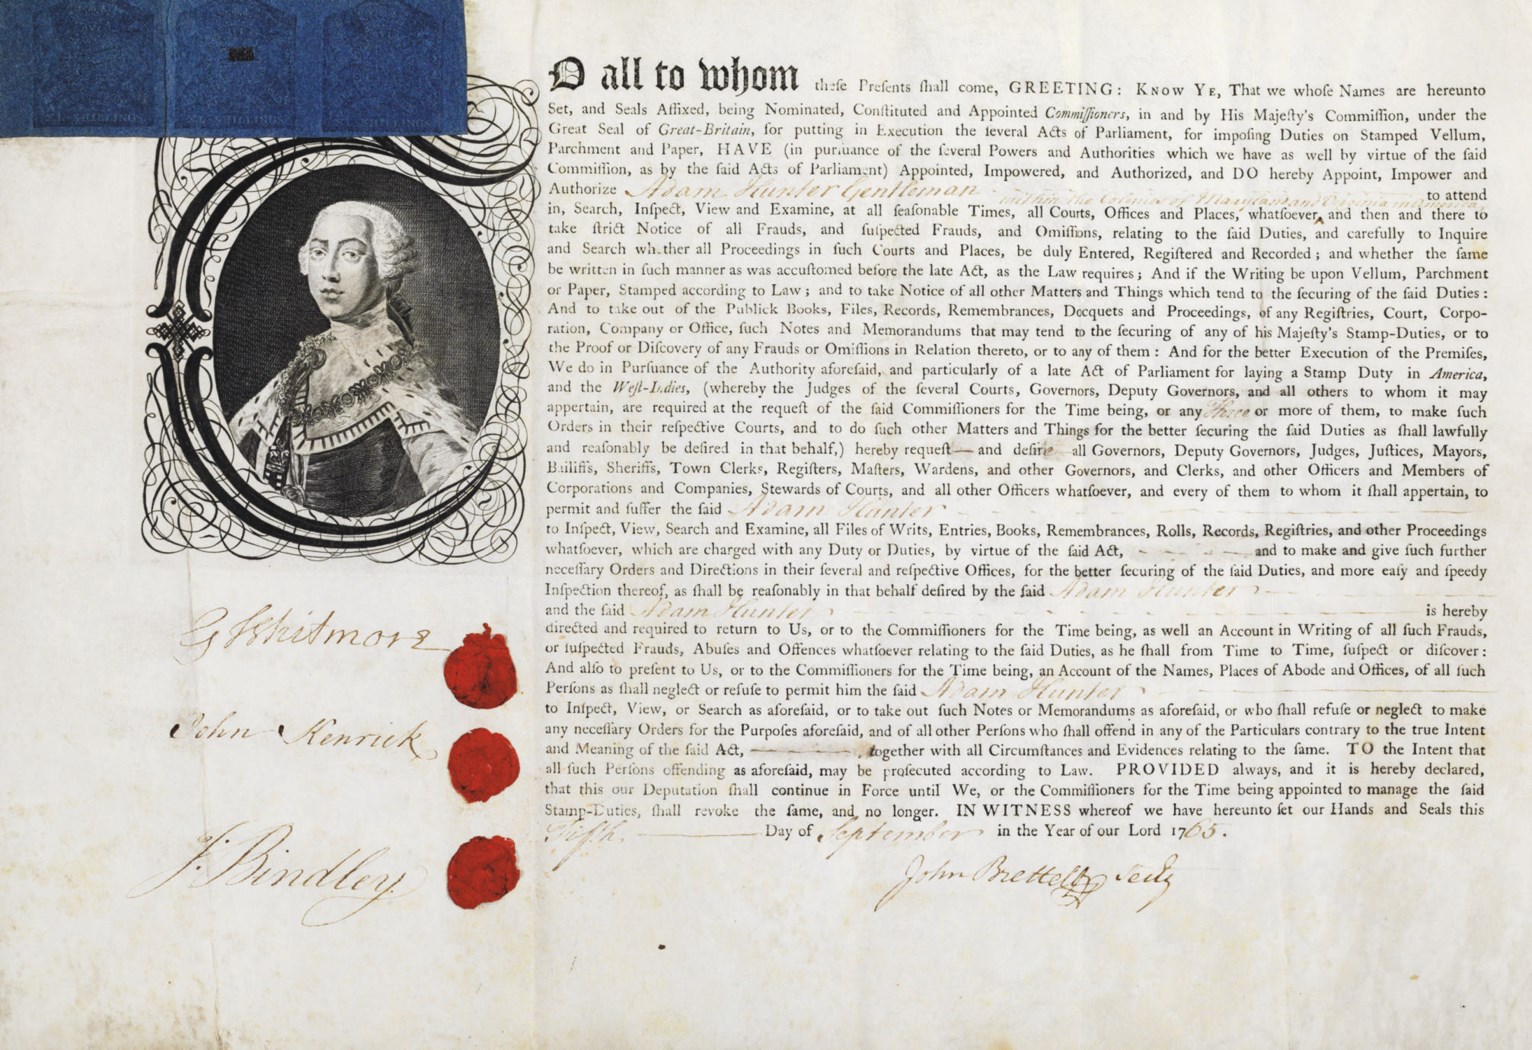 XL·SHILLINGS XL·SHILLINGS XL·SHILLINGS
O all to whom theſe Preſents ſhall come, GREETING: KNOW YE, That we whoſe Names are hereunto
Set, and Seals Affixed, being Nominated, Conſtituted and Appointed Commiſſioners, in and by His Majeſty's Commiſſion, under the
Great Seal of Great-Britain, for putting in Execution the ſeveral Acts of Parliament, for impoſing Duties on Stamped Vellum,
Parchment and Paper, HAVE (in purſuance of the ſeveral Powers and Authorities which we have as well by virtue of the ſaid
Commiſſion, as by the ſaid Acts of Parliament) Appointed, Impowered, and Authorized, and DO hereby Appoint, Impower and
Authorize Adam Hunter Gentleman within the Colonies of Maryland and Virginia in America to attend
in, Search, Inſpect, View and Examine, at all ſeaſonable Times, all Courts, Offices and Places, whatſoever, and then and there to
take ſtrict Notice of all Frauds, and ſuſpected Frauds, and Omiſſions, relating to the ſaid Duties, and carefully to Inquire
and Search whether all Proceedings in ſuch Courts and Places, be duly Entered, Regiſtered and Recorded; and whether the ſame
be written in ſuch manner as was accuſtomed before the late Act, as the Law requires; And if the Writing be upon Vellum, Parchment
or Paper, Stamped according to Law; and to take Notice of all other Matters and Things which tend to the ſecuring of the ſaid Duties:
And to take out of the Publick Books, Files, Records, Remembrances, Docquets and Proceedings, of any Regiſtries, Court, Corpo-
ration, Company or Office, ſuch Notes and Memorandums that may tend to the ſecuring of any of his Majeſty's Stamp-Duties, or to
the Proof or Diſcovery of any Frauds or Omiſſions in Relation thereto, or to any of them: And for the better Execution of the Premiſes,
We do in Purſuance of the Authority aforeſaid, and particularly of a late Act of Parliament for laying a Stamp Duty in America,
and the Weſt-Indies, (whereby the Judges of the ſeveral Courts, Governors, Deputy Governors, and all others to whom it may
appertain, are required at the requeſt of the ſaid Commiſſioners for the Time being, or any three or more of them, to make ſuch
Orders in their reſpective Courts, and to do ſuch other Matters and Things for the better ſecuring the ſaid Duties as ſhall lawfully
and reaſonably be deſired in that behalf,) hereby requeſt — and deſire all Governors, Deputy Governors, Judges, Juſtices, Mayors,
Bailiffs, Sheriffs, Town Clerks, Regiſters, Maſters, Wardens, and other Governors, and Clerks, and other Officers and Members of
Corporations and Companies, Stewards of Courts, and all other Officers whatſoever, and every of them to whom it ſhall appertain, to
permit and ſuffer the ſaid Adam Hunter
to Inſpect, View, Search and Examine, all Files of Writs, Entries, Books, Remembrances, Rolls, Records, Regiſtries, and other Proceedings
whatſoever, which are charged with any Duty or Duties, by virtue of the ſaid Act, and to make and give ſuch further
neceſſary Orders and Directions in their ſeveral and reſpective Offices, for the better ſecuring of the ſaid Duties, and more eaſy and ſpeedy
Inſpection thereof, as ſhall be reaſonably in that behalf deſired by the ſaid Adam Hunter
and the ſaid Adam Hunter is hereby
directed and required to return to Us, or to the Commiſſioners for the Time being, as well an Account in Writing of all ſuch Frauds,
or ſuſpected Frauds, Abuſes and Offences whatſoever relating to the ſaid Duties, as he ſhall from Time to Time, ſuſpect or diſcover:
And alſo to preſent to Us, or to the Commiſſioners for the Time being, an Account of the Names, Places of Abode and Offices, of all ſuch
Perſons as ſhall neglect or refuſe to permit him the ſaid Adam Hunter
to Inſpect, View, or Search as aforeſaid, or to take out ſuch Notes or Memorandums as aforeſaid, or who ſhall refuſe or neglect to make
any neceſſary Orders for the Purpoſes aforeſaid, and of all other Perſons who ſhall offend in any of the Particulars contrary to the true Intent
and Meaning of the ſaid Act, together with all Circumſtances and Evidences relating to the ſame. TO the Intent that
all ſuch Perſons offending as aforeſaid, may be proſecuted according to Law. PROVIDED always, and it is hereby declared,
that this our Deputation ſhall continue in Force until We, or the Commiſſioners for the Time being appointed to manage the ſaid
Stamp-Duties, ſhall revoke the ſame, and no longer. IN WITNESS whereof we have hereunto ſet our Hands and Seals this
Fifth Day of September in the Year of our Lord 1765.
John Brettell Secry
G Whitmore
John Kenrick
J. Bindley